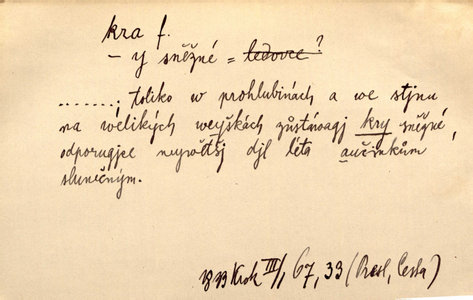 kra f.
– y sněžné = ledovce?
.......; toliko w prohlubinách a we stjnu
na welikých weyškách zůstáwagj kry sněžné,
odporugjce neywětšj djl léta aučinkům
slunečným.
Krok III/1, 67, 33 (Presl, Cesta)